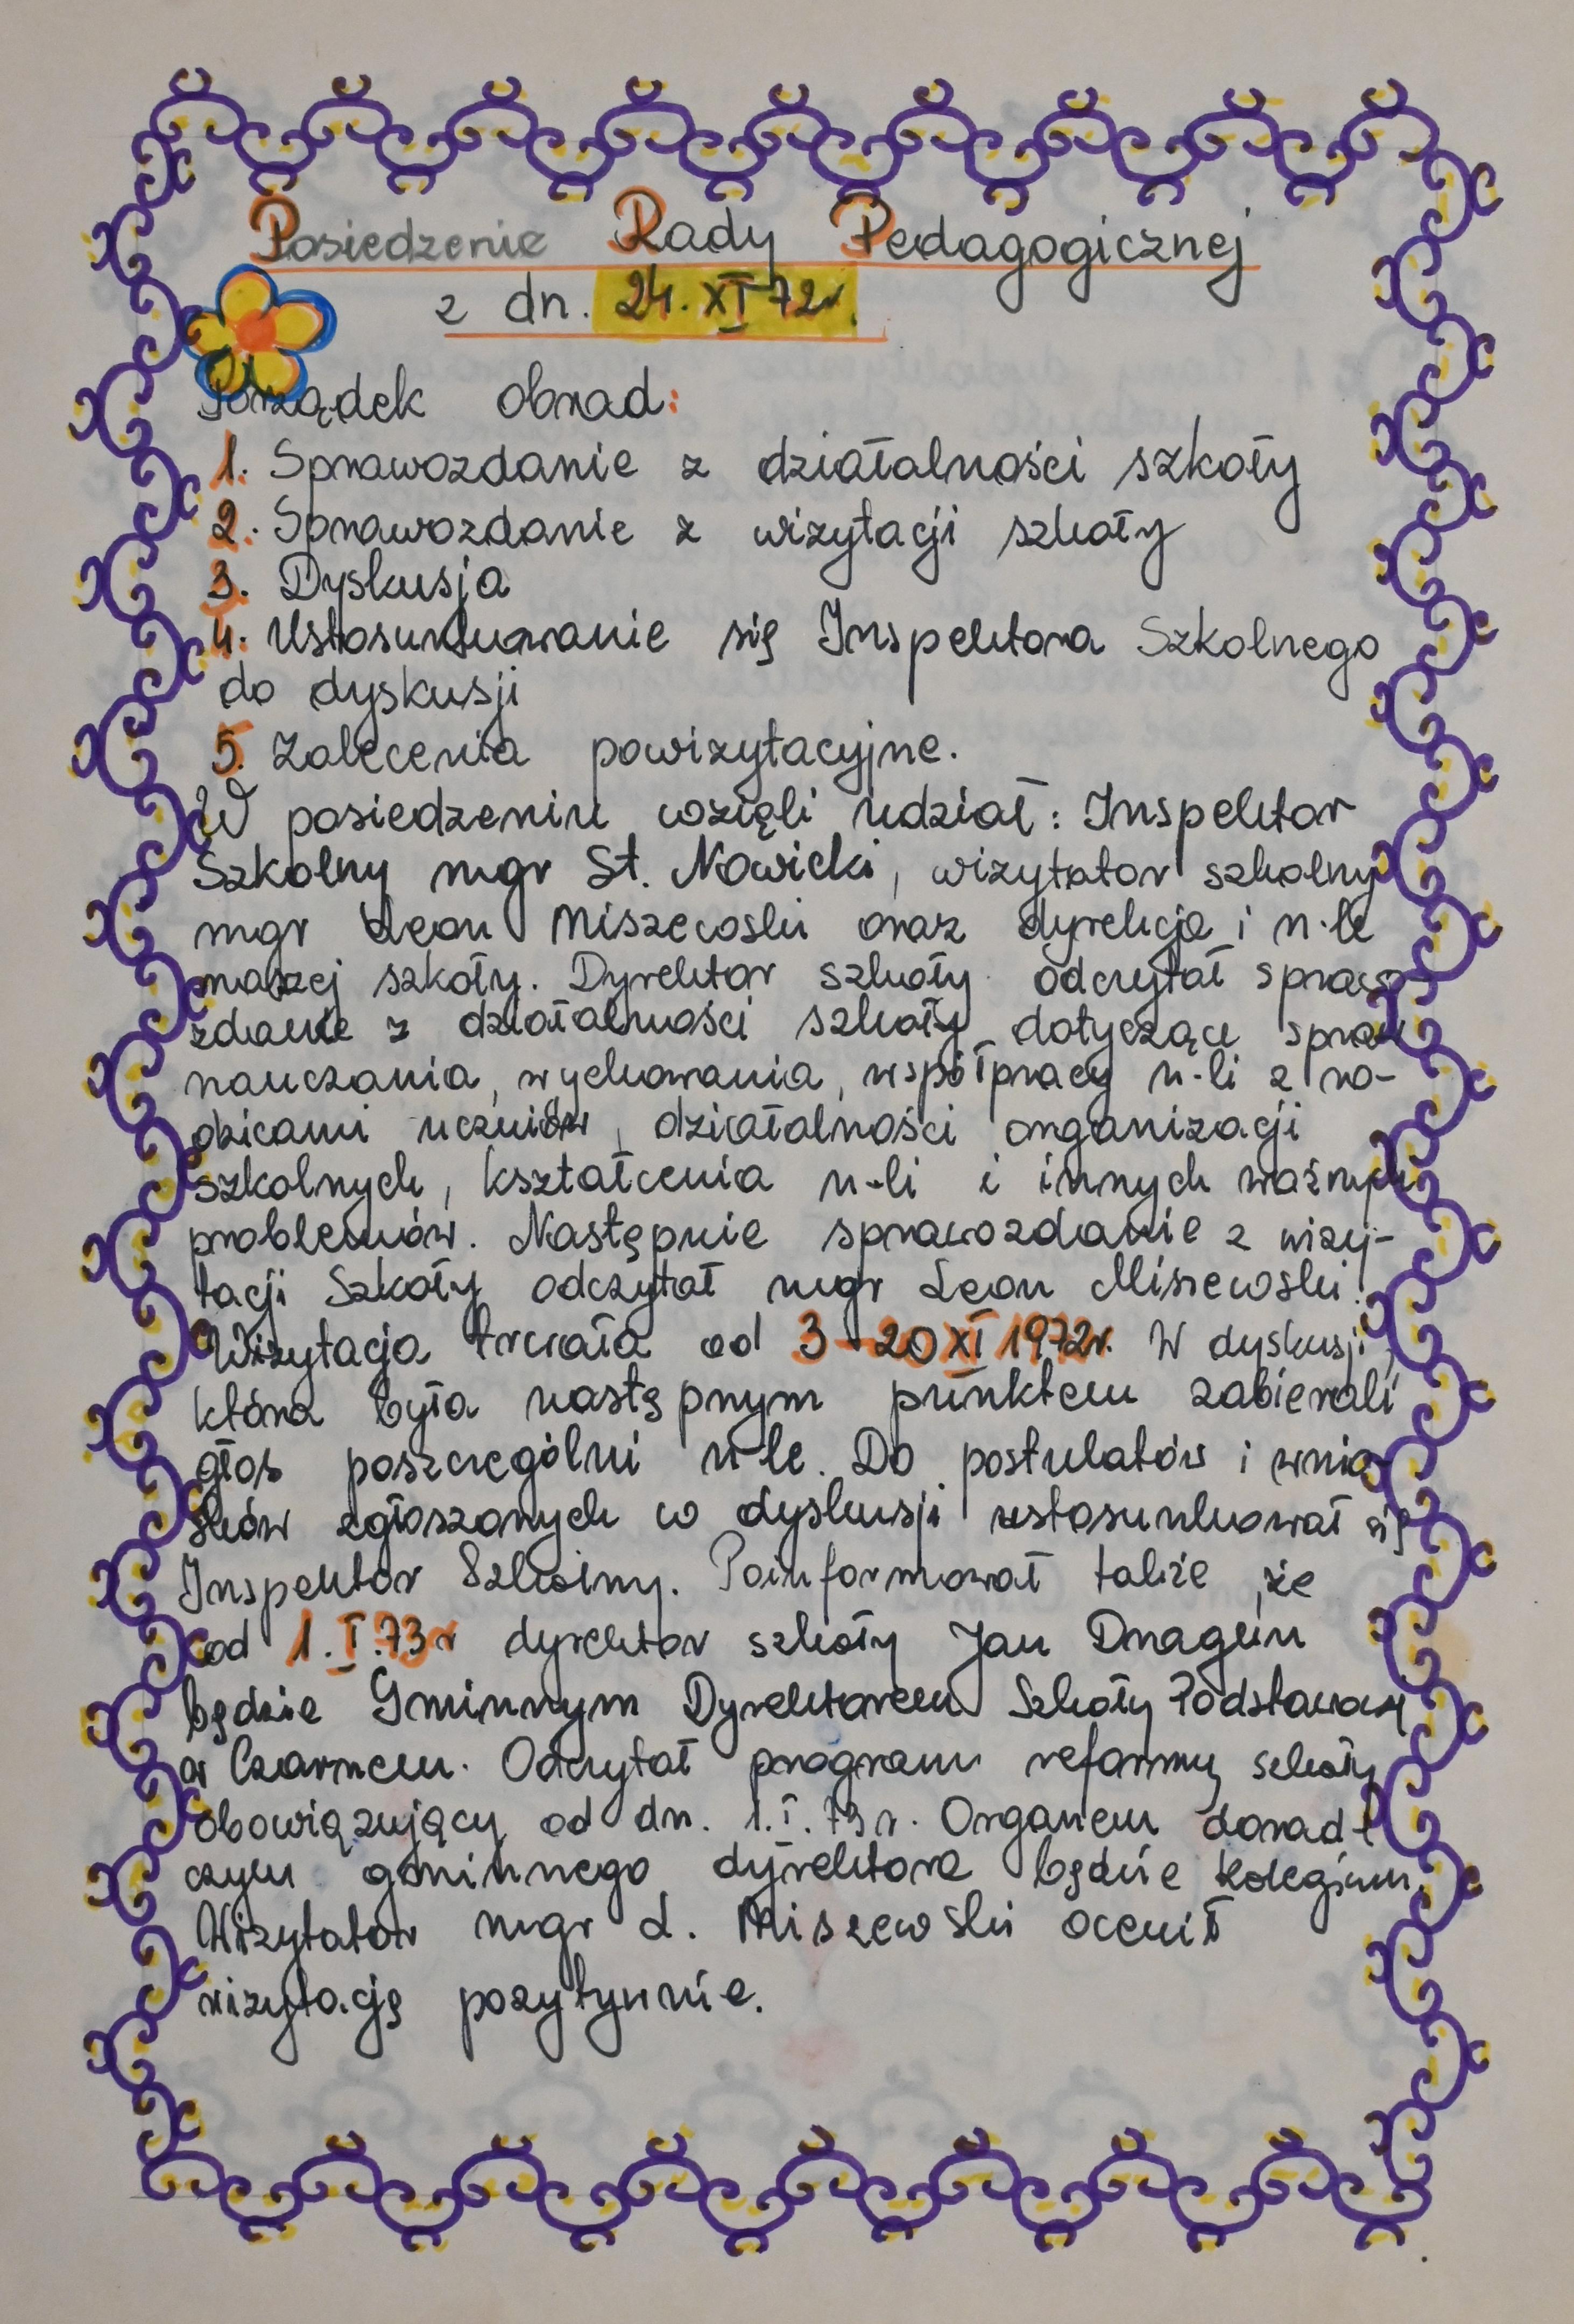 Posiedzenie Rady Pedagogicznej
z dn. 24.XI 72r.
Porządek obrad:
1. Sprawozdanie z działalności szkoły
2. Sprawozdanie z wizytacji szkoły
3. Dyskusja
4. Ustosunkowanie się Inspektora Szkolnego
do dyskusji
5. Zalecenia powizytacyjne.
W posiedzeniu wzięli udział: Inspektor
Szkolny mgr St. Nowicki, wizytator szkolny
mgr Leon Miszewski oraz dyrekcja i n-le
naszej szkoły. Dyrektor szkoły odczytał sprawo
zdanie z działalności szkoły dotyczące spraw
nauczania, wychowania, współpracy n-li z ro-
dzicami uczniów, działalności organizacji
szkolnych, kształcenia n-li i innych ważnych
problemów. Następnie sprawozdanie z wizy-
tacji Szkoły odczytał mgr Leon Miszewski.
Wizytacja trwała od 3-20 XI 1972r. W dyskusji,
która była następnym punktem zabierali
głos poszczególni n-le. Do postulatów i wnio-
sków zgłoszonych w dyskusji ustosunkował się
Inspektor Szkolny. Poinformował także, że
od 1.I.73r dyrektor szkoły Jan Dragun
będzie Gminnym Dyrektorem Szkoły Podstawowej
w Czarnem. Odczytał program reformy szkoły
obowiązujący od dn. 1.I.73r. Organem dorad-
czym gminnego dyrektora będzie kolegium.
Wizytator mgr L. Miszewski ocenił
wizytację pozytywnie.